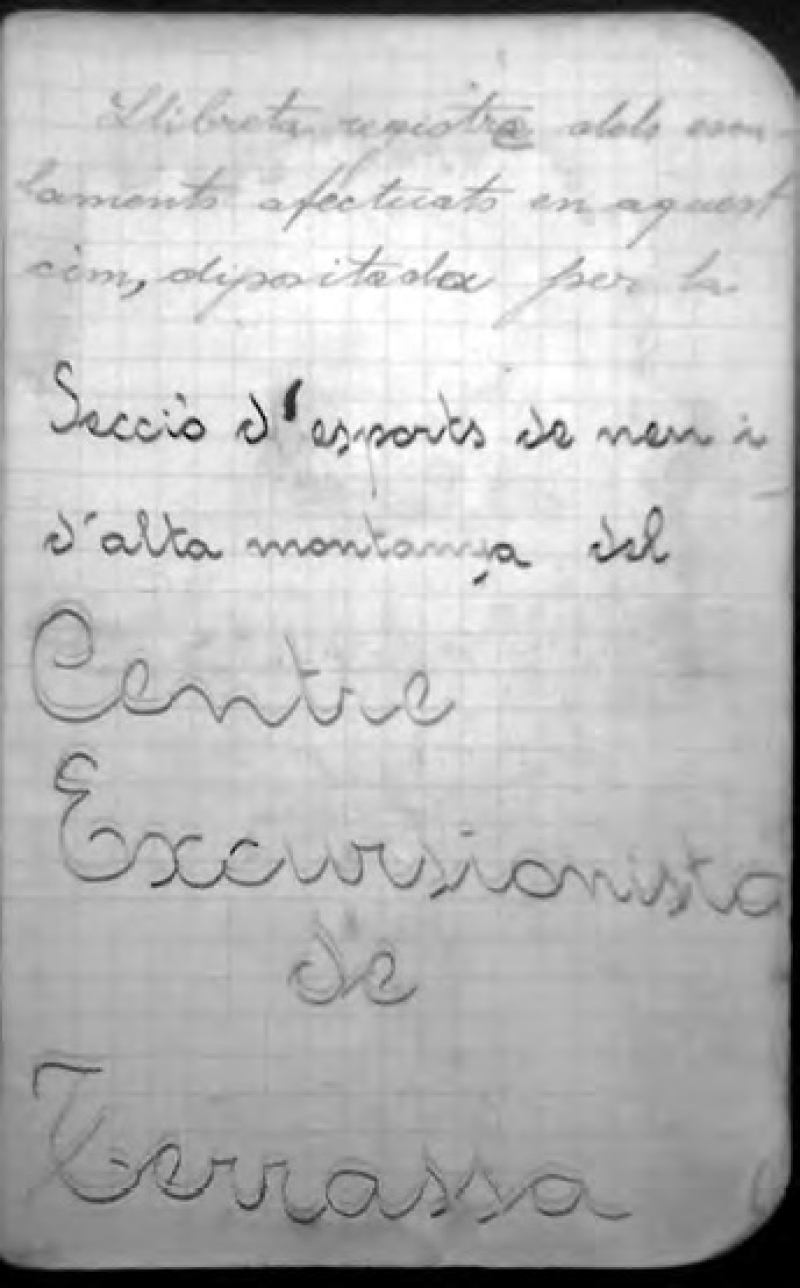 Llibreta registre dels esca-
laments efectuats en aquest
cim, dipositada per la
Secció d'esports de neu i
d'alta montanya del
Centre
Excursionista
de
Terrassa